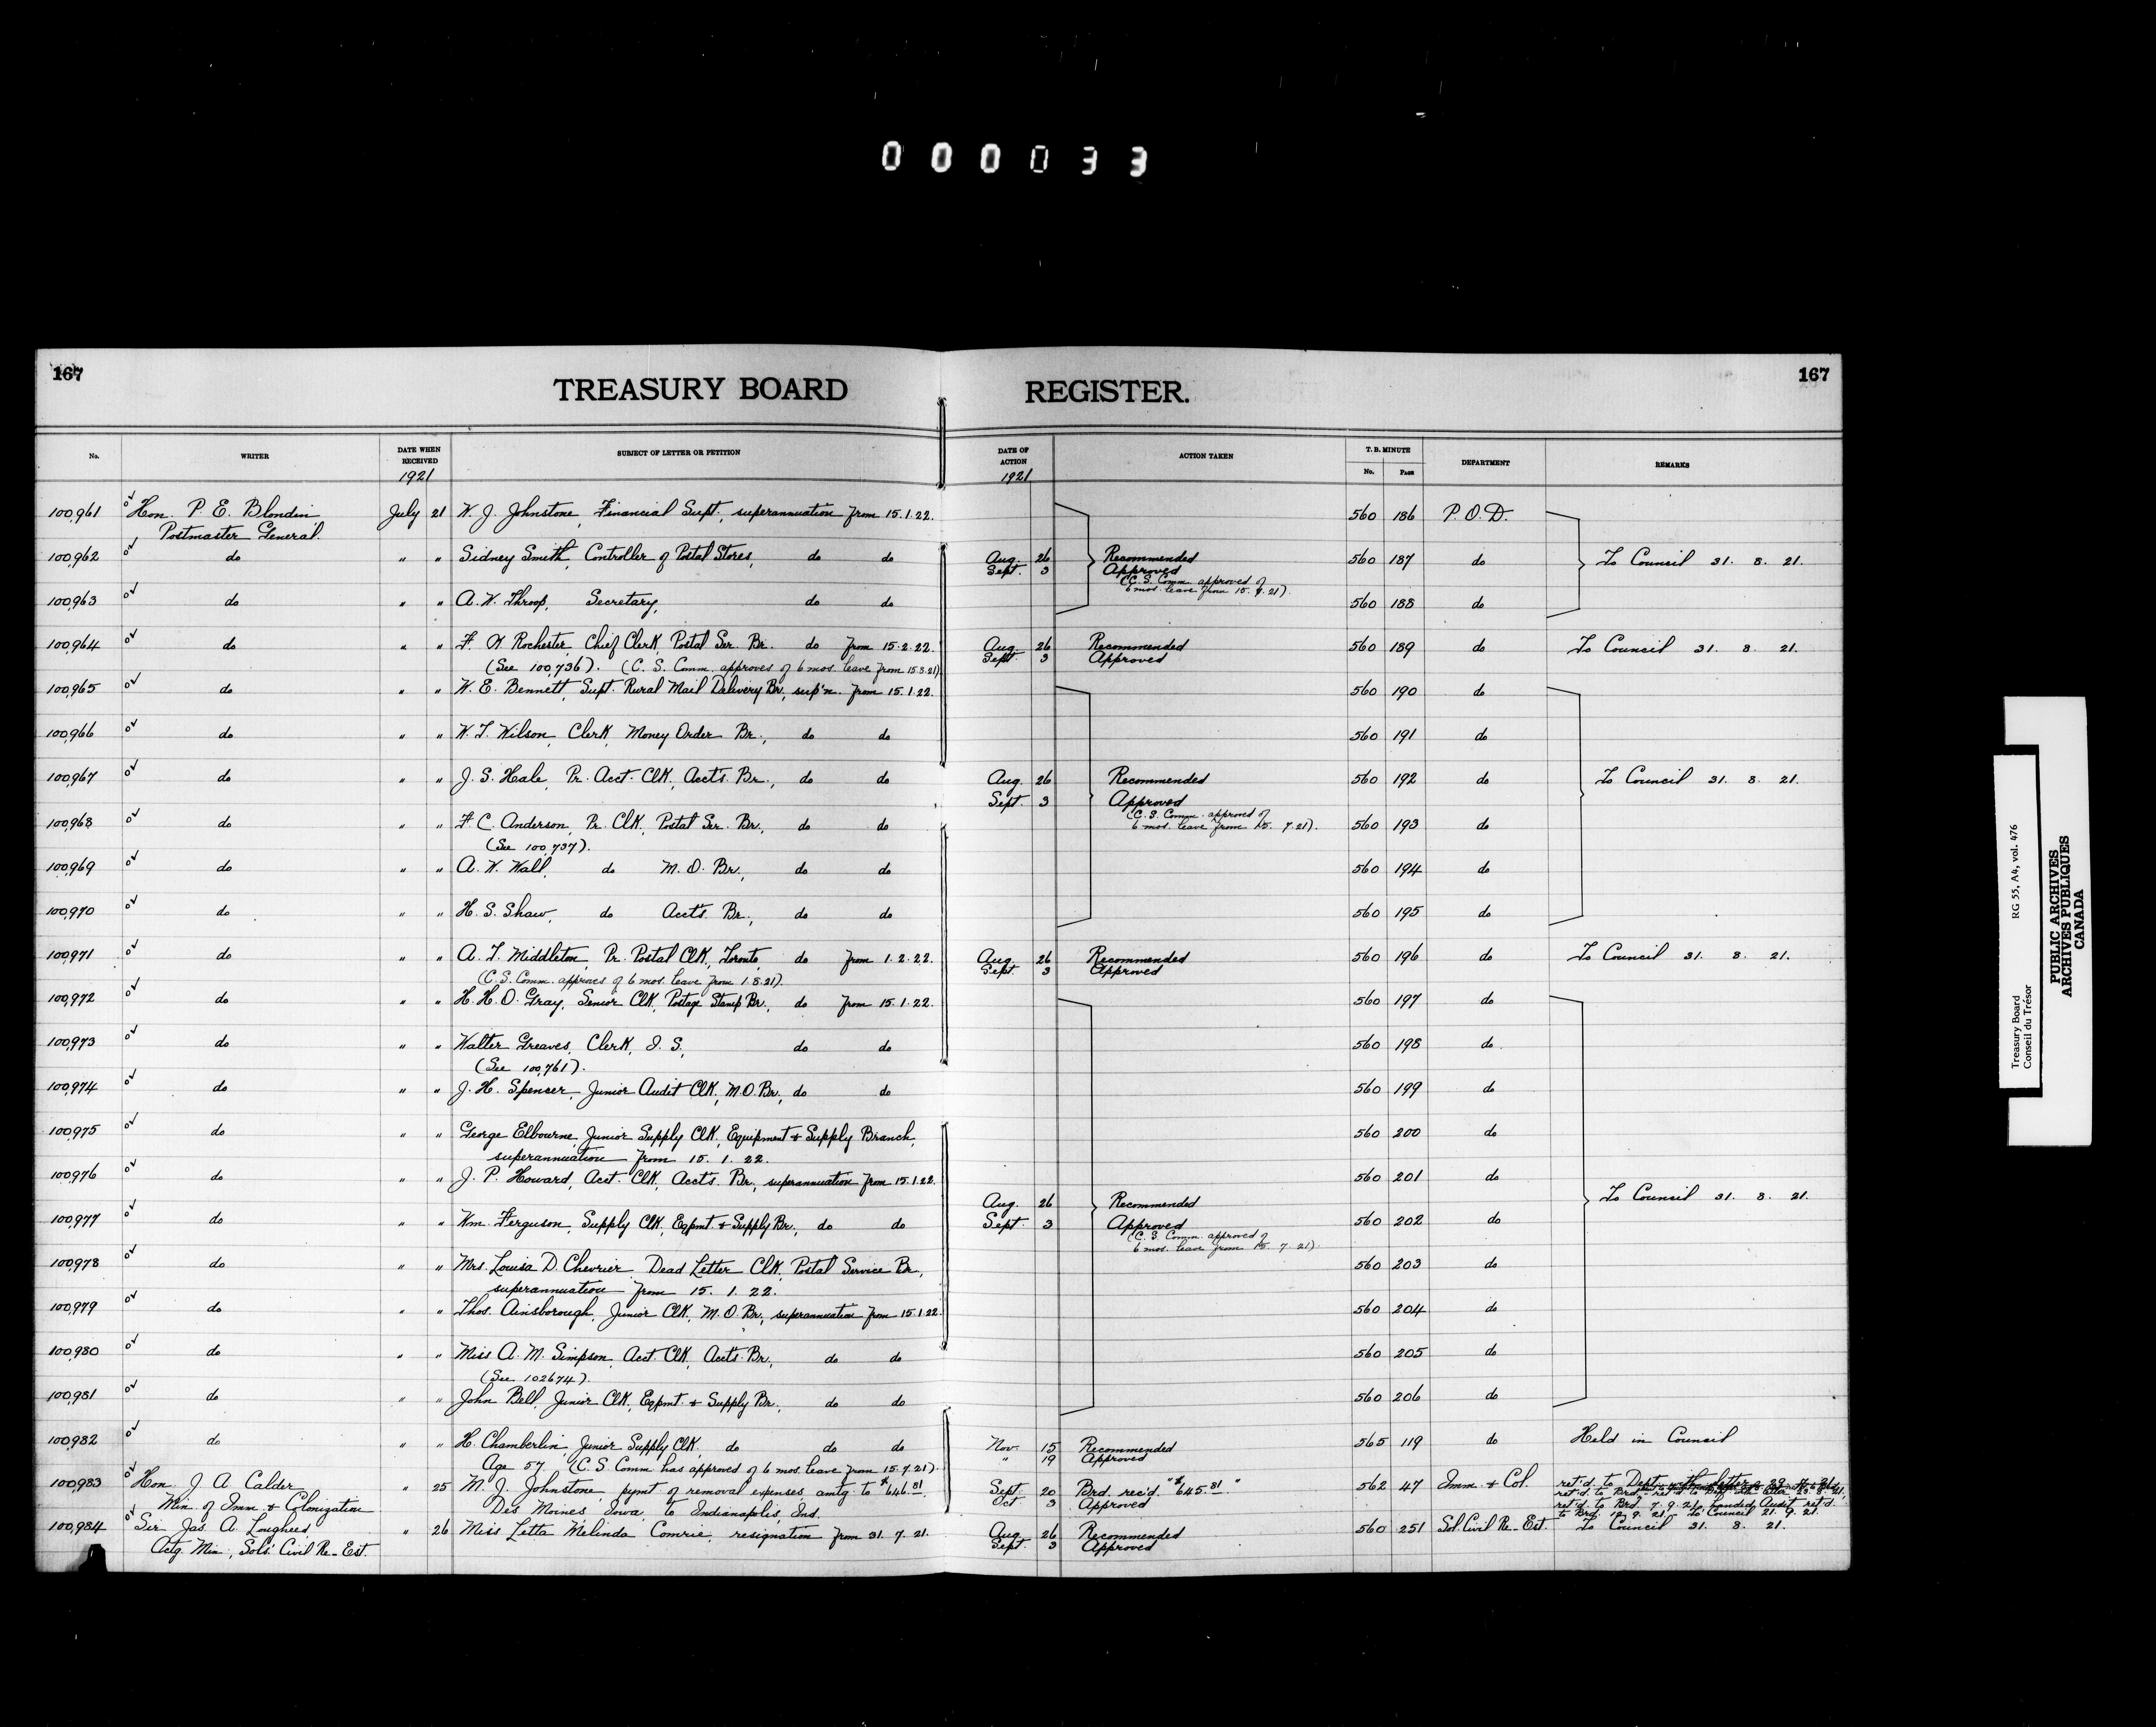 000033
167
TREASURY BOARD REGISTER.
167
No. WRITER DATE WHEN RECEIVED SUBJECT OF LETTER OR PETITION DATE OF ACTION ACTION TAKEN T. B. MINUTE No. PAGE DEPARTMENT REMARKS
1921 1921
100,961 Hon. P. E. Blondin July 21 W. J. Johnstone, Financial Supt., superannuation from 15.1.22. 560 186 P.O.D.
Postmaster General.
100,962 do " " Sidney Smith, Controller of Postal Stores, do do Aug. 26 Recommended 560 187 do To Council 31. 8. 21.
Sept. 3 Approved
(C. S. Comm. approved of
6 mos. leave from 15. 7. 21).
100,963 do " " A. W. Throop, Secretary, do do 560 188 do
100,964 do " " F. W. Rochester, Chief Clerk, Postal Ser. Br. do from 15.2.22. Aug. 26 Recommended 560 189 do To Council 31. 8. 21.
(See 100,736). (C. S. Comm. approves of 6 mos. leave from 15.8.21) Sept. 3 Approved
100,965 do " " W. E. Bennett, Supt. Rural Mail Delivery Br., sup'n. from 15.1.22. 560 190 do
100,966 do " " W. T. Wilson, Clerk, Money Order Br., do do 560 191 do
100,967 do " " J. S. Hale, Pr. Acct. Clk, Acct's. Br., do do Aug. 26 Recommended 560 192 do To Council 31. 8. 21.
Sept. 3 Approved
(C. S. Comm. approved of
6 mos. leave from 15. 7. 21).
100,968 do " " F. C. Anderson, Pr. Clk, Postal Ser. Br., do do 560 193 do
(See 100,737).
100,969 do " " A. W. Wall, do M. O. Br., do do 560 194 do
100,970 do " " H. S. Shaw, do Acct's. Br., do do 560 195 do
100,971 do " " A. T. Middleton, Pr. Postal Clk, Toronto, do from 1.2.22. Aug. 26 Recommended 560 196 do To Council 31. 8. 21.
(C. S. Comm. approves of 6 mos. leave from 1.8.21). Sept. 3 Approved
100,972 do " " H. H. D. Gray, Senior Clk, Postage Stamp Br., do from 15.1.22. 560 197 do
100,973 do " " Walter Greaves, Clerk, I. S., do do 560 198 do
(See 100,761).
100,974 do " " J. H. Spencer, Junior Audit Clk., M.O. Br., do do 560 199 do
100,975 do " " George Elbourne, Junior Supply Clk, Equipment & Supply Branch, 560 200 do
superannuation from 15. 1. 22.
100,976 do " " J. P. Howard, Acct. Clk, Acct's. Br., superannuation from 15.1.22. 560 201 do
Aug. 26 Recommended To Council 31. 8. 21.
100,977 do " " Wm. Ferguson, Supply Clk, Eqpmt. & Supply Br., do do Sept. 3 Approved 560 202 do
(C. S. Comm. approved of
6 mos. leave from 15. 7. 21).
100,978 do " " Mrs. Louisa D. Chevrier Dead Letter Clk, Postal Service Br., 560 203 do
superannuation from 15. 1. 22.
100,979 do " " Thos. Ainsborough, Junior Clk., M. O. Br., superannuation from 15.1.22. 560 204 do
100,980 do " " Miss A. M. Simpson, Acct. Clk, Acct's. Br., do do 560 205 do
(See 102674).
100,981 do " " John Bell, Junior Clk, Eqpmt. & Supply Br., do do 560 206 do
100,982 do " " H. Chamberlin, Junior Supply Clk, do do do Nov. 15 Recommended 565 119 do Held in Council
Age 57 (C. S. Comm. has approved of 6 mos. leave from 15.7.21). " 19 Approved
100,983 Hon. J. A. Calder " 25 M. J. Johnstone, pymt of removal expenses amtg to $646.81. Sept. 20 Brd. rec'd. "$645.81" 562 47 Imm. & Col. ret'd. to Dept.
Min. of Imm. & Colonization Des Moines, Iowa, to Indianapolis, Ind. Oct. 3 Approved
ret'd. to Brd. 7. 9. 21. Audit ret'd.
to Brd. 21. to Council 21. 9. 21.
100,984 Sir Jas. A. Lougheed, " 26 Miss Letta Melinda Comrie, resignation from 31. 7. 21. Aug. 26 Recommended 560 251 Sol. Civil Re-Est. To Council 31. 8. 21.
Actg. Min., Sols'. Civil Re-Est. Sept. 3 Approved
Treasury Board RG 55, A4, vol. 476
Conseil du Trésor
PUBLIC ARCHIVES
ARCHIVES PUBLIQUES
CANADA